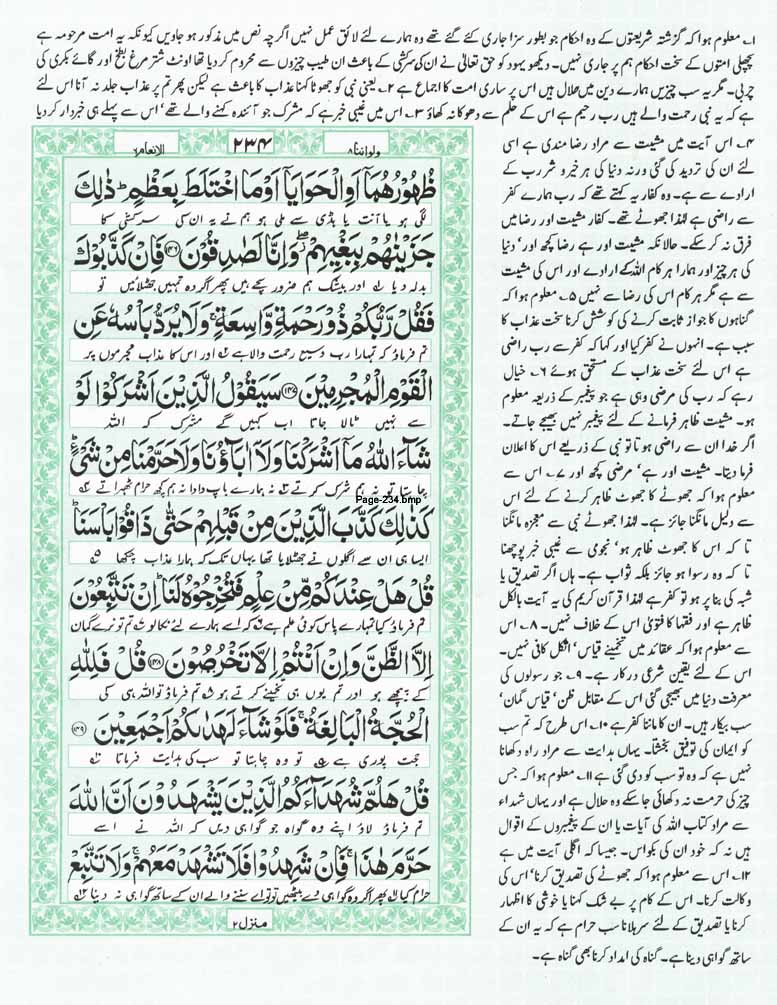 ۱۔ معلوم ہوا کہ گزشتہ شریعتوں کے وہ احکام جو بطور سزا جاری کئے گئے تھے وہ ہمارے لئے لائق عمل نہیں اگرچہ نص میں مذکور ہو جاویں کیونکہ یہ امت مرحومہ ہے
پچھلی امتوں کے سخت احکام ہم پر جاری نہیں۔ دیکھو یہود کو حق تعالیٰ نے ان کی سرکشی کے باعث ان طیب چیزوں سے محروم کر دیا تھا اونٹ شتر مرغ بطخ اور گائے بکری کی
چربی۔ مگر یہ سب چیزیں ہمارے دین میں حلال ہیں اس پر ساری امت کا اجماع ہے ۲۔ یعنی نبی کو جھوٹا کہنا عذاب کا باعث ہے لیکن پھر تم پر عذاب جلد نہ آنا اس لئے
ہے کہ یہ نبی رحمت والے ہیں رب رحیم ہے اس کے حلم سے دھوکا نہ کھاؤ ۳۔ اس میں غیبی خبر ہے کہ مشرک جو آئندہ کہنے والے تھے' اس سے پہلے ہی خبردار کر دیا
ولواننا ۸ ۲۳۴ الانعام ۶
ظُهُوْرُهُمَاۤ اَوِ الْحَوَايَاۤ اَوْ مَا اخْتَلَطَ بِعَظْمٍ ؕ ذٰلِكَ
لگی ہو یا آنت یا ہڈی سے ملی ہو ہم نے یہ ان کی سرکشی کا
جَزَيْنٰهُمْ بِبَغْيِهِمْ ۖ وَاِنَّا لَصٰدِقُوْنَ ﴿۱۴۶﴾ فَاِنْ كَذَّبُوْكَ
بدلہ دیا اور بیشک ہم ضرور سچے ہیں پھر اگر وہ تمہیں جھٹلائیں تو
فَقُلْ رَّبُّكُمْ ذُوْ رَحْمَةٍ وَّاسِعَةٍ ۚ وَلَا يُرَدُّ بَاْسُهٗ عَنِ
تم فرماؤ کہ تمہارا رب وسیع رحمت والا ہے اور اس کا عذاب مجرموں پر
الْقَوْمِ الْمُجْرِمِيْنَ ﴿۱۴۷﴾ سَيَقُوْلُ الَّذِيْنَ اَشْرَكُوْا لَوْ
سے نہیں ٹالا جاتا اب کہیں گے مشرک کہ اللہ
شَآءَ اللّٰهُ مَاۤ اَشْرَكْنَا وَلَاۤ اٰبَآؤُنَا وَلَا حَرَّمْنَا مِنْ شَىْءٍ ؕ
چاہتا تو نہ ہم شرک کرتے نہ ہمارے باپ دادا نہ ہم کچھ حرام ٹھہراتے
Page-234.bmp
كَذٰلِكَ كَذَّبَ الَّذِيْنَ مِنْ قَبْلِهِمْ حَتّٰى ذَاقُوْا بَاْسَنَا ؕ
ایسا ہی ان سے اگلوں نے جھٹلایا تھا یہاں تک کہ ہمارا عذاب چکھا
قُلْ هَلْ عِنْدَكُمْ مِّنْ عِلْمٍ فَتُخْرِجُوْهُ لَنَا ؕ اِنْ تَتَّبِعُوْنَ
تم فرماؤ کیا تمہارے پاس کوئی علم ہے کہ اسے ہمارے لئے نکالو تم تو نرے گمان
اِلَّا الظَّنَّ وَاِنْ اَنْتُمْ اِلَّا تَخْرُصُوْنَ ﴿۱۴۸﴾ قُلْ فَلِلّٰهِ
کے پیچھے ہو اور تم یوں ہی تخمینے کرتے ہو تم فرماؤ تو اللہ ہی کی
الْحُجَّةُ الْبَالِغَةُ ۚ فَلَوْ شَآءَ لَهَدٰىكُمْ اَجْمَعِيْنَ ﴿۱۴۹﴾
حجت پوری ہے تو وہ چاہتا تو سب کی ہدایت فرماتا
قُلْ هَلُمَّ شُهَدَآءَكُمُ الَّذِيْنَ يَشْهَدُوْنَ اَنَّ اللّٰهَ
تم فرماؤ لاؤ اپنے وہ گواہ جو گواہی دیں کہ اللہ نے اسے
حَرَّمَ هٰذَا ۚ فَاِنْ شَهِدُوْا فَلَا تَشْهَدْ مَعَهُمْ ۚ وَلَا تَتَّبِعْ
حرام کیا پھر اگر وہ گواہی دے بیٹھیں تو تو اے سننے والے ان کے ساتھ گواہی نہ دینا
منزل ۲
۴۔ اس آیت میں مشیت سے مراد رضا مندی ہے اسی
لئے ان کی تردید کی گئی ورنہ دنیا کی ہر خیر و شر رب کے
ارادے سے ہے۔ وہ کفار یہ کہتے تھے کہ رب ہمارے کفر
سے راضی ہے لہٰذا جھوٹے تھے۔ کفار مشیت اور رضا میں
فرق نہ کر سکے۔ حالانکہ مشیت اور ہے رضا کچھ اور' دنیا
کی ہر چیز اور ہمارا ہر کام اللہ کے ارادے اور اس کی مشیت
سے ہے مگر ہر کام اس کی رضا سے نہیں ۵۔ معلوم ہوا کہ
گناہوں کا جواز ثابت کرنے کی کوشش کرنا سخت عذاب کا
سبب ہے۔ انہوں نے کفر کیا اور کہا کہ کفر سے رب راضی
ہے اس لئے سخت عذاب کے مستحق ہوئے ۶۔ خیال
رہے کہ رب کی مرضی وہی ہے جو پیغمبر کے ذریعہ معلوم
ہو۔ مشیت ظاہر فرمانے کے لئے پیغمبر نہیں بھیجے جاتے۔
اگر خدا ان سے راضی ہوتا تو نبی کے ذریعے اس کا اعلان
فرما دیتا۔ مشیت اور ہے' مرضی کچھ اور ۷۔ اس سے
معلوم ہوا کہ جھوٹے کا جھوٹ ظاہر کرنے کے لئے اس
سے دلیل مانگنا جائز ہے۔ لہٰذا جھوٹے نبی سے معجزہ مانگنا
تا کہ اس کا جھوٹ ظاہر ہو' نجومی سے غیبی خبر پوچھنا
تا کہ وہ رسوا ہو جائز بلکہ ثواب ہے۔ ہاں اگر تصدیق یا
شبہ کی بنا پر ہو تو کفر ہے لہٰذا قرآن کریم کی یہ آیت بالکل
ظاہر ہے اور فقہا کا فتویٰ اس کے خلاف نہیں۔ ۸۔ اس
سے معلوم ہوا کہ عقائد میں تخمینے قیاس' اٹکل کافی نہیں۔
اس کے لئے یقین شرعی درکار ہے۔ ۹۔ جو رسولوں کی
معرفت دنیا میں بھیجی گئی اس کے مقابل ظن' قیاس گمان'
سب بیکار ہیں۔ ان کا ماننا کفر ہے ۱۰۔ اس طرح کہ تم سب
کو ایمان کی توفیق بخشتا۔ یہاں ہدایت سے مراد راہ دکھانا
نہیں ہے کہ وہ تو سب کو دی گئی ہے ۱۱۔ معلوم ہوا کہ جس
چیز کی حرمت نہ دکھائی جا سکے وہ حلال ہے اور یہاں شہداء
سے مراد کتاب اللہ کی آیات یا ان کے پیغمبروں کے اقوال
ہیں نہ کہ خود ان کی بکواس۔ جیسا کہ اگلی آیت میں ہے
۱۲۔ اس سے معلوم ہوا کہ جھوٹے کی تصدیق کرنا' اس کی
وکالت کرنا۔ اس کے کام پر بے شک کہنا یا خوشی کا اظہار
کرنا یا تصدیق کے لئے سر ہلانا سب حرام ہے کہ یہ ان کے
ساتھ گواہی دینا ہے۔ گناہ کی امداد کرنا بھی گناہ ہے۔